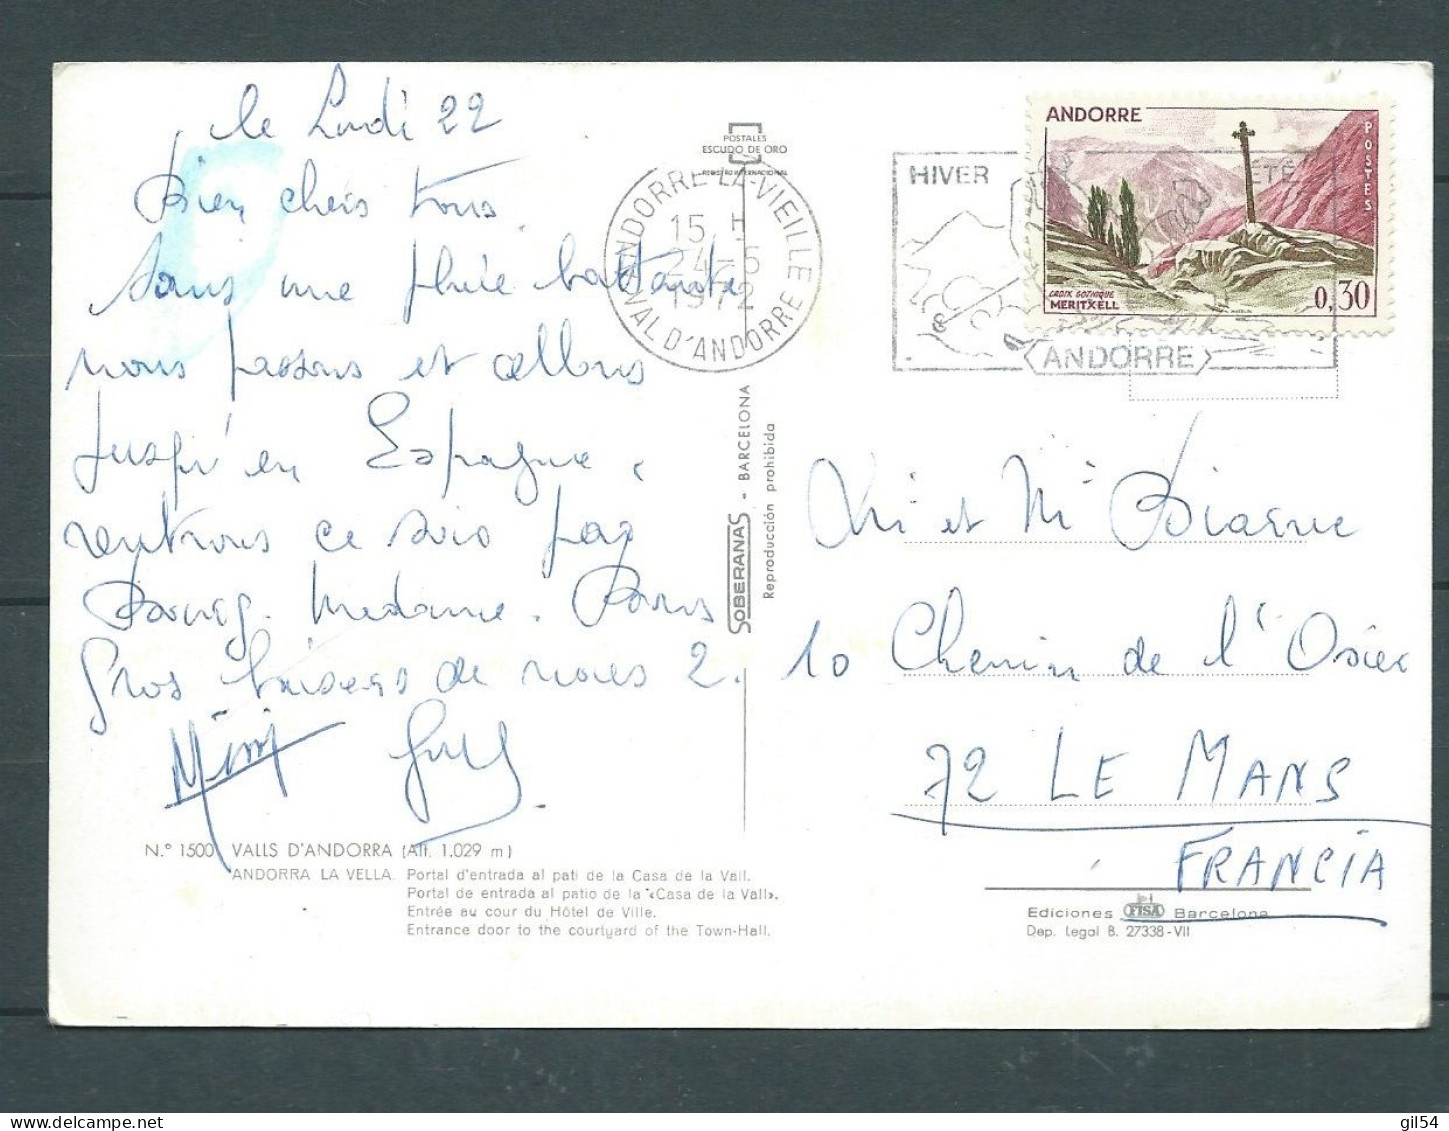 le Lundi 22
Bien chers tous.
Sous une pluie battante
nous passons et allons
jusqu'en Espagne,
rentrons ce soir par
Bourg. Madame.
Gros baisers de nous 2.
Mimi
N.º 1500 VALLS D'ANDORRA (Alt. 1.029 m)
ANDORRA LA VELLA. Portal d'entrada al pati de la Casa de la Vall.
Portal de entrada al patio de la «Casa de la Vall».
Entrée au cour du Hôtel de Ville.
Entrance door to the courtyard of the Town-Hall.
POSTALES
ESCUDO DE ORO
REGISTRO INTERNACIONAL
SOBERANAS - BARCELONA
Reproducción prohibida
ANDORRE-LA-VIEILLE
15 H
24-5
1972
VAL D'ANDORRE
HIVER
ÉTÉ
ANDORRE
ANDORRE
POSTES
CROIX GOTHIQUE
MERITXELL
0,30
et Mr Biarnc
10 Chemin de l'Osier
72 LE MANS
FRANCIA
Ediciones FISA Barcelona
Dep. Legal B. 27338-VII
gil54